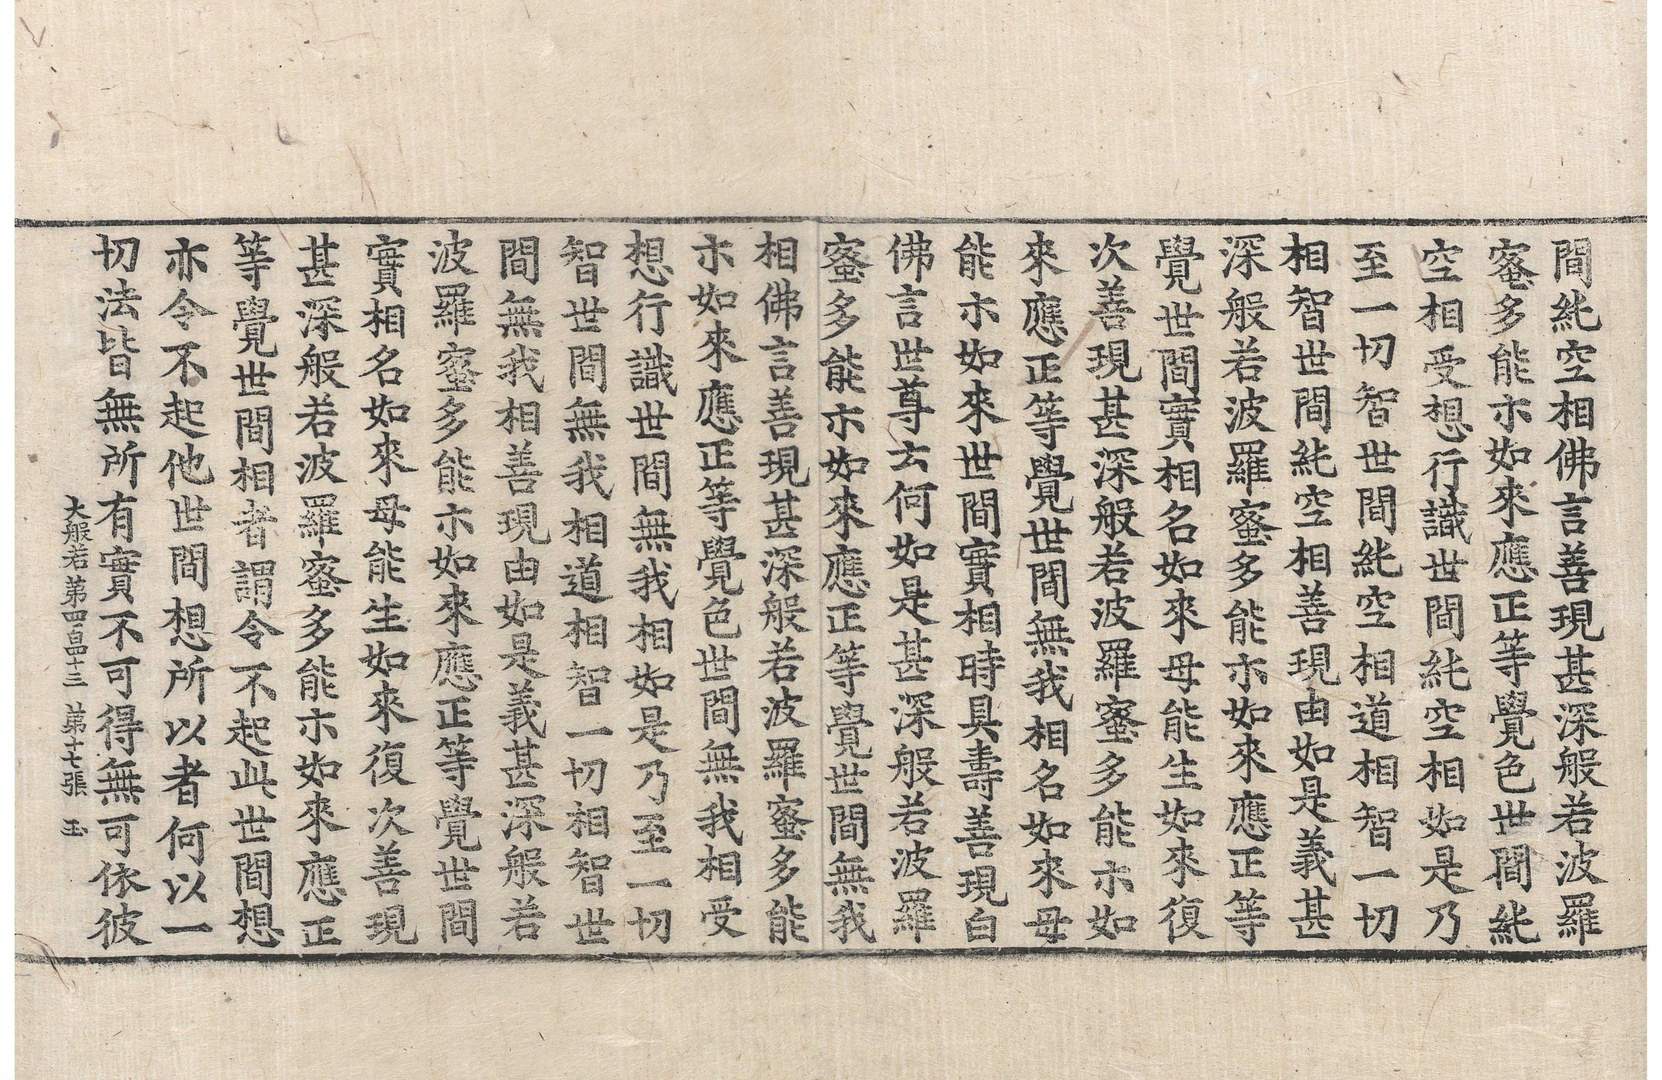 間純空相佛言善現甚深般若波羅
蜜多能示如來應正等覺色世間純
空相受想行識世間純空相如是乃
至一切智世間純空相道相智一切
相智世間純空相善現由如是義甚
深般若波羅蜜多能示如來應正等
覺世間實相名如來母能生如來復
次善現甚深般若波羅蜜多能示如
來應正等覺世間無我相名如來母
能示如來世間實相時具壽善現白
佛言世尊云何如是甚深般若波羅
蜜多能示如來應正等覺世間無我
相佛言善現甚深般若波羅蜜多能
示如來應正等覺色世間無我相受
想行識世間無我相如是乃至一切
智世間無我相道相智一切相智世
間無我相善現由如是義甚深般若
波羅蜜多能示如來應正等覺世間
實相名如來母能生如來復次善現
甚深般若波羅蜜多能示如來應正
等覺世間相者謂令不起此世間想
亦令不起他世間想所以者何以一
切法皆無所有實不可得無可依彼
大般若第四百四十三 第十七張 玉